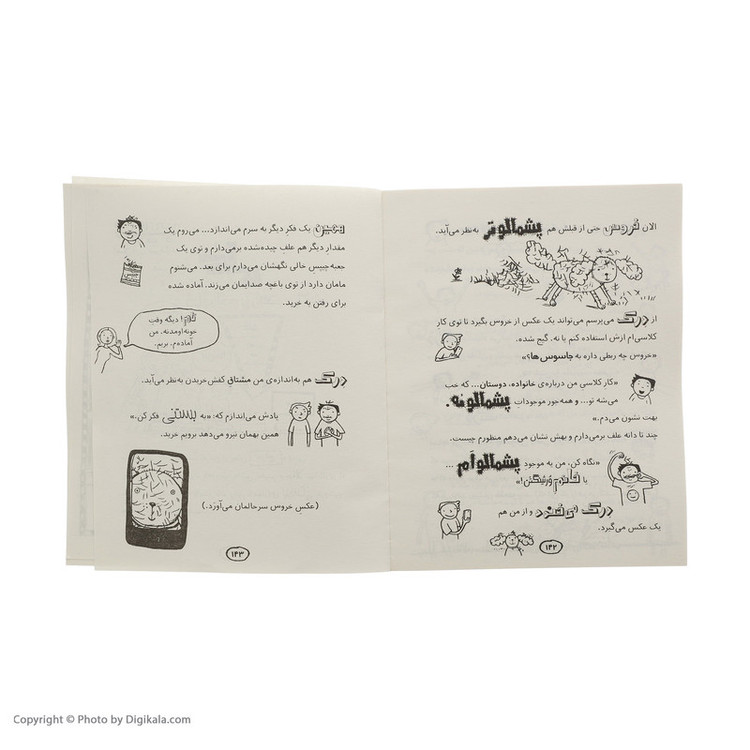 الان خروس حتی از قبلش هم پشمالوتر به‌نظر می‌آید.
از درک می‌پرسم می‌تواند یک عکس از خروس بگیرد تا توی کار
کلاسی‌ام ازش استفاده کنم یا نه. گیج شده.
«خروس چه ربطی داره به جاسوس‌ها؟»
«کار کلاسی من درباره‌ی خانواده، دوستان... که خب
می‌شه تو... و همه‌جور موجودات پشمالوئه.
بهت نشون می‌دم.»
چند تا دانه علف برمی‌دارم و بهش نشان می‌دهم منظورم چیست.
«نگاه کن. من یه موجود پشمالواَم ...
با
درک می‌خندد و از من هم
یک عکس می‌گیرد.
۱۴۲
یک فکر دیگر به سرم می‌اندازد... می‌روم یک
مقدار دیگر هم علفِ چیده‌شده برمی‌دارم و توی یک
جعبه‌چیپس خالی نگهشان می‌دارم برای بعد. می‌شنوم
مامان دارد از توی باغچه صدایمان می‌زند. آماده شده
برای رفتن به خرید.
تام! دیگه وقتِ
خونه‌اومدنه. من
آماده‌م. بریم.
درک هم به‌اندازه‌ی من مشتاق کفش‌خریدن به‌نظر می‌آید.
یادش می‌اندازم که: «به بستنی فکر کن.»
همین بهمان نیرو می‌دهد برویم خرید.
(عکس خروس سرحالمان می‌آوَرَد.)
۱۴۳
Copyright © Photo by Digikala.com